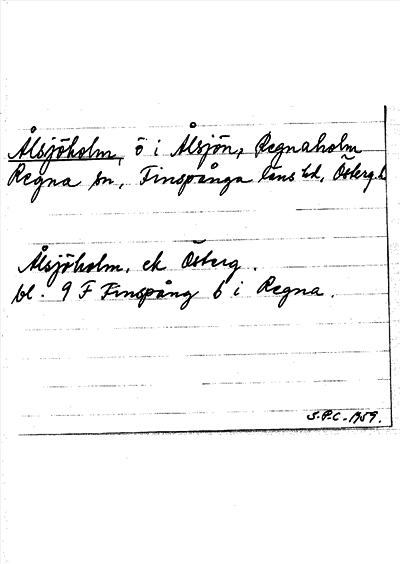 Ålsjöholm, ö i Ålsjön, Regnaholm
Regna sn, Finspånga läns hd, Österg.l.
Ålsjöholm, ek Österg.
bl. 9 F Finspång b i Regna.
S.P.C. 1959.